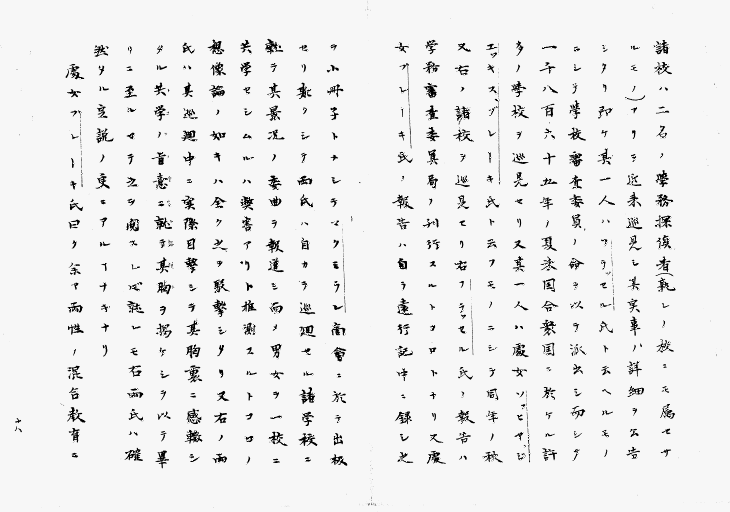 諸校ハ二名ノ學務探偵者(孰レノ放ニモ屬セサ
ルモノ)アリテ近来巡見シ其実事ハ詳細ヲ公告
シタリ即ケ其一人ハフラゼル氏ト云ヘルモノ
ニシテ學校審査委員ノ命ヲ以テ派出シ而シテ
一千八百六十五年ノ夏米国合衆国ニ於ケル許
多ノ學校ヲ巡見セリ又其一人ハ處女ソッヒヤ、ジ
エッキスブレーキ氏ト云フモノニシテ同年ノ秋
又右ノ諸校ヲ巡見セリ右フラッセル氏ノ報告ハ
学務審査委員局ノ刊行スルトコロトナリ又處
女ブレーキ氏ノ報告ハ自ラ遠行記中ニ録シ之
ヲ小冊子トナシテマクミラレ商會ニ於テ出板
セリ斯クシテ両氏ハ自カラ巡廻セル諸学校ニ
就テ其景况ノ委曲ヲ報道シ而メ男女ヲ一校ニ
共学セシムルハ弊害アリト推測スルトコロノ
想像論ノ如キハ全ク之ヲ駁撃シタリ又右ノ両
氏ハ其巡廻中ニ実際目撃シテ其胸裏ニ感轍シ
タル共学ノ旨意ニ就テ其胸ヲ掲ケシヲ以テ畢
リニ至ルマテ之ヲ閲スレ𪜈孰レモ右両氏ハ確
然タル定説ノ更ニアルヿナキナリ
處女ブレーキ氏曰ク余ハ両性ノ混合教育ニ
十八